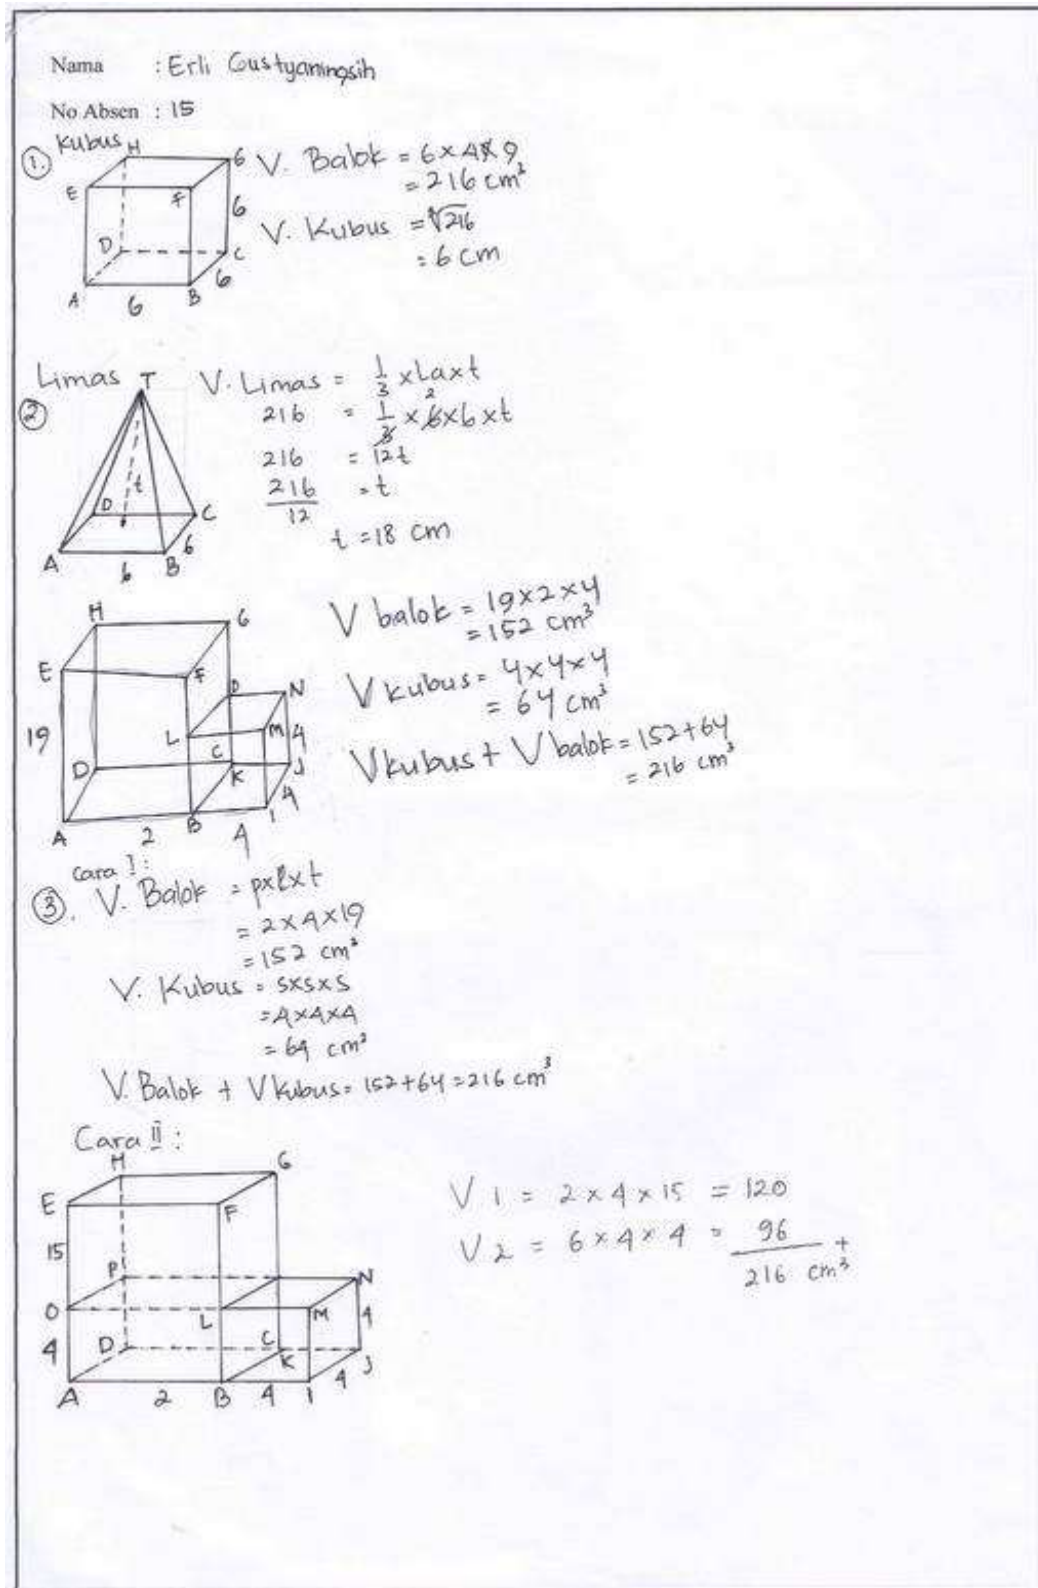 Nama : Erli Gustyaningsih
No Absen : 15
1. Kubus
H
G
E
F
D
C
A
B
6
6
6
V. Balok = 6 x 4 x 9
= 216 cm³
V. Kubus = ∛216
= 6 cm
Limas
2
T
t
D
C
A
B
6
6
V. Limas = 1/3 x La x t
216 = 1/3 x 6 x 6 x t
2
216 = 12t
216/12 = t
t = 18 cm
H
G
E
F
P
N
19
L
M
4
D
C
K
J
4
A
2
B
4
I
V balok = 19 x 2 x 4
= 152 cm³
V kubus = 4 x 4 x 4
= 64 cm³
V kubus + V balok = 152 + 64
= 216 cm³
Cara I :
3. V. Balok = p x l x t
= 2 x 4 x 19
= 152 cm³
V. Kubus = s x s x s
= 4 x 4 x 4
= 64 cm³
V. Balok + V kubus = 152 + 64 = 216 cm³
Cara II :
H
G
E
F
15
P
N
O
L
M
4
4
D
C
K
J
A
2
B
4
I
4
V 1 = 2 x 4 x 15 = 120
V 2 = 6 x 4 x 4 = 96 +
216 cm³